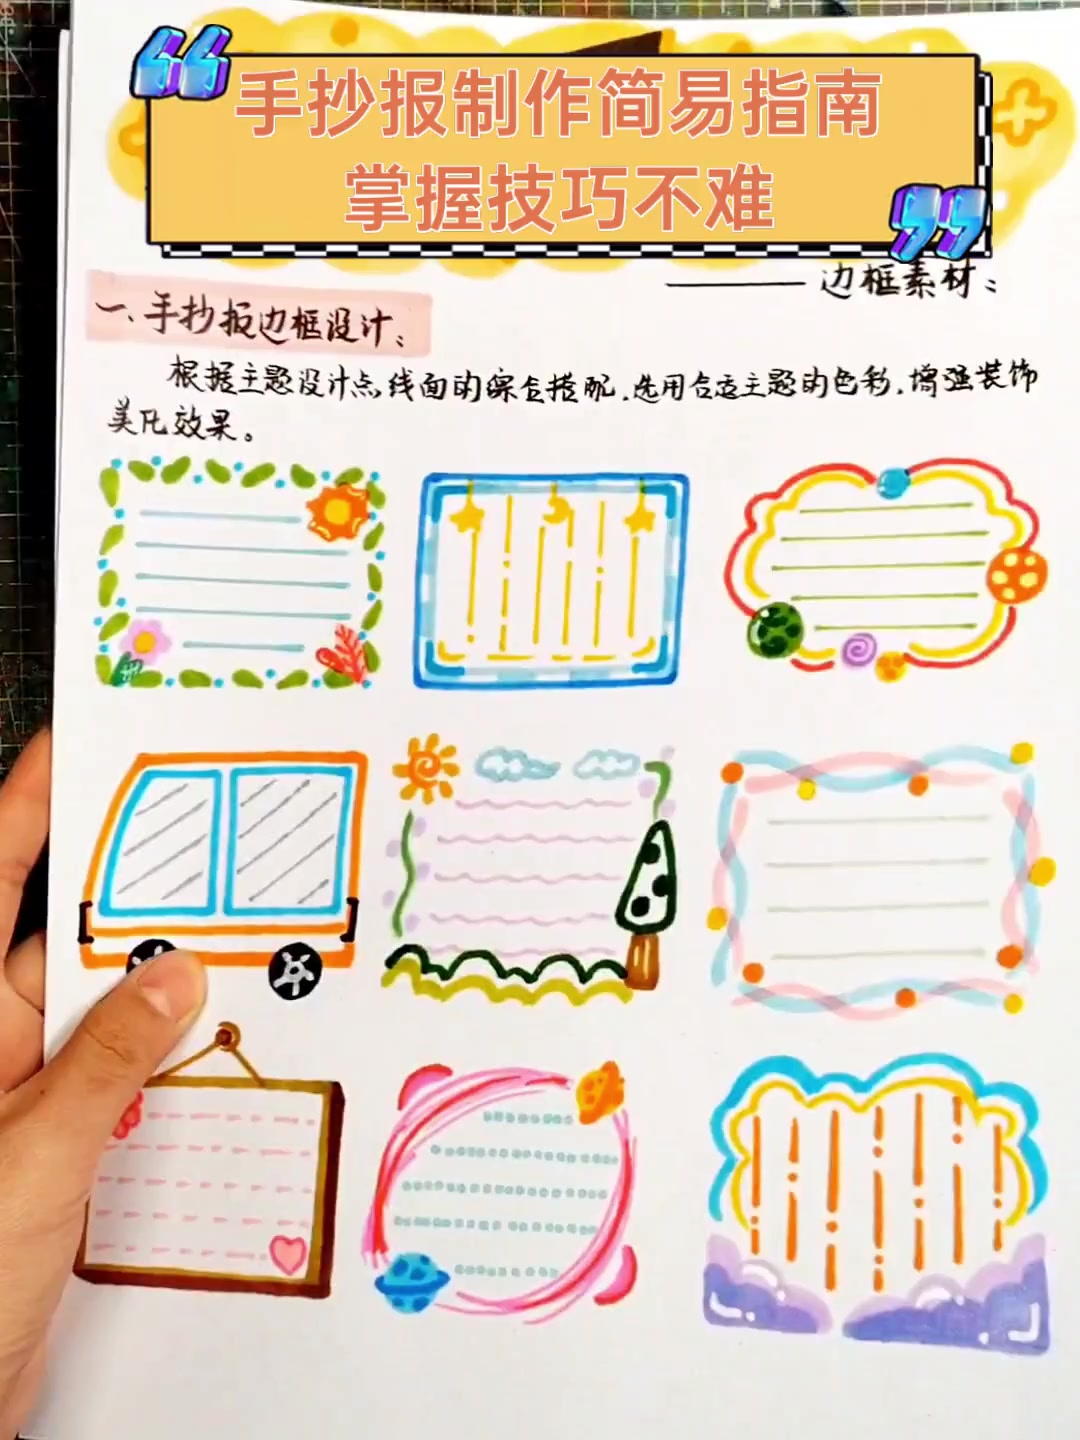 手抄报制作简易指南
掌握技巧不难
——— 边框素材:
一、手抄报边框设计:
根据主题设计点线面的综合搭配.选用合适主题的色彩.增强装饰
美化效果。